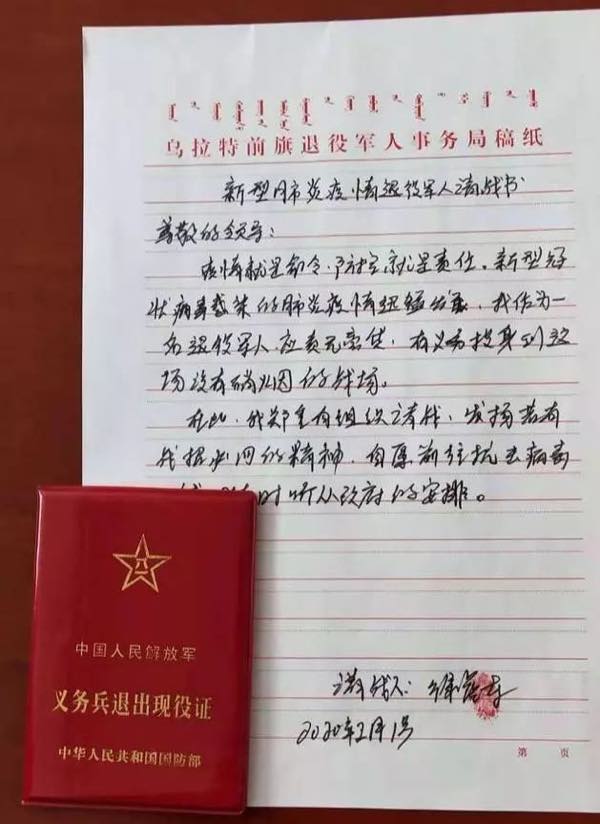 乌拉特前旗退役军人事务局稿纸
新型肺炎疫情退役军人请战书
尊敬的领导：
疫情就是命令，防控就是责任。新型冠
状病毒感染的肺炎疫情迅猛发展，我作为一
名退役军人应责无旁贷，有义务投身到这
场没有硝烟的战场。
在此，我郑重向组织请战，发扬若有
我提必回的精神，自愿前往抗击病毒
时听从政府的安排。
请战人：
2020年2月1号
第 页
中国人民解放军
义务兵退出现役证
中华人民共和国国防部